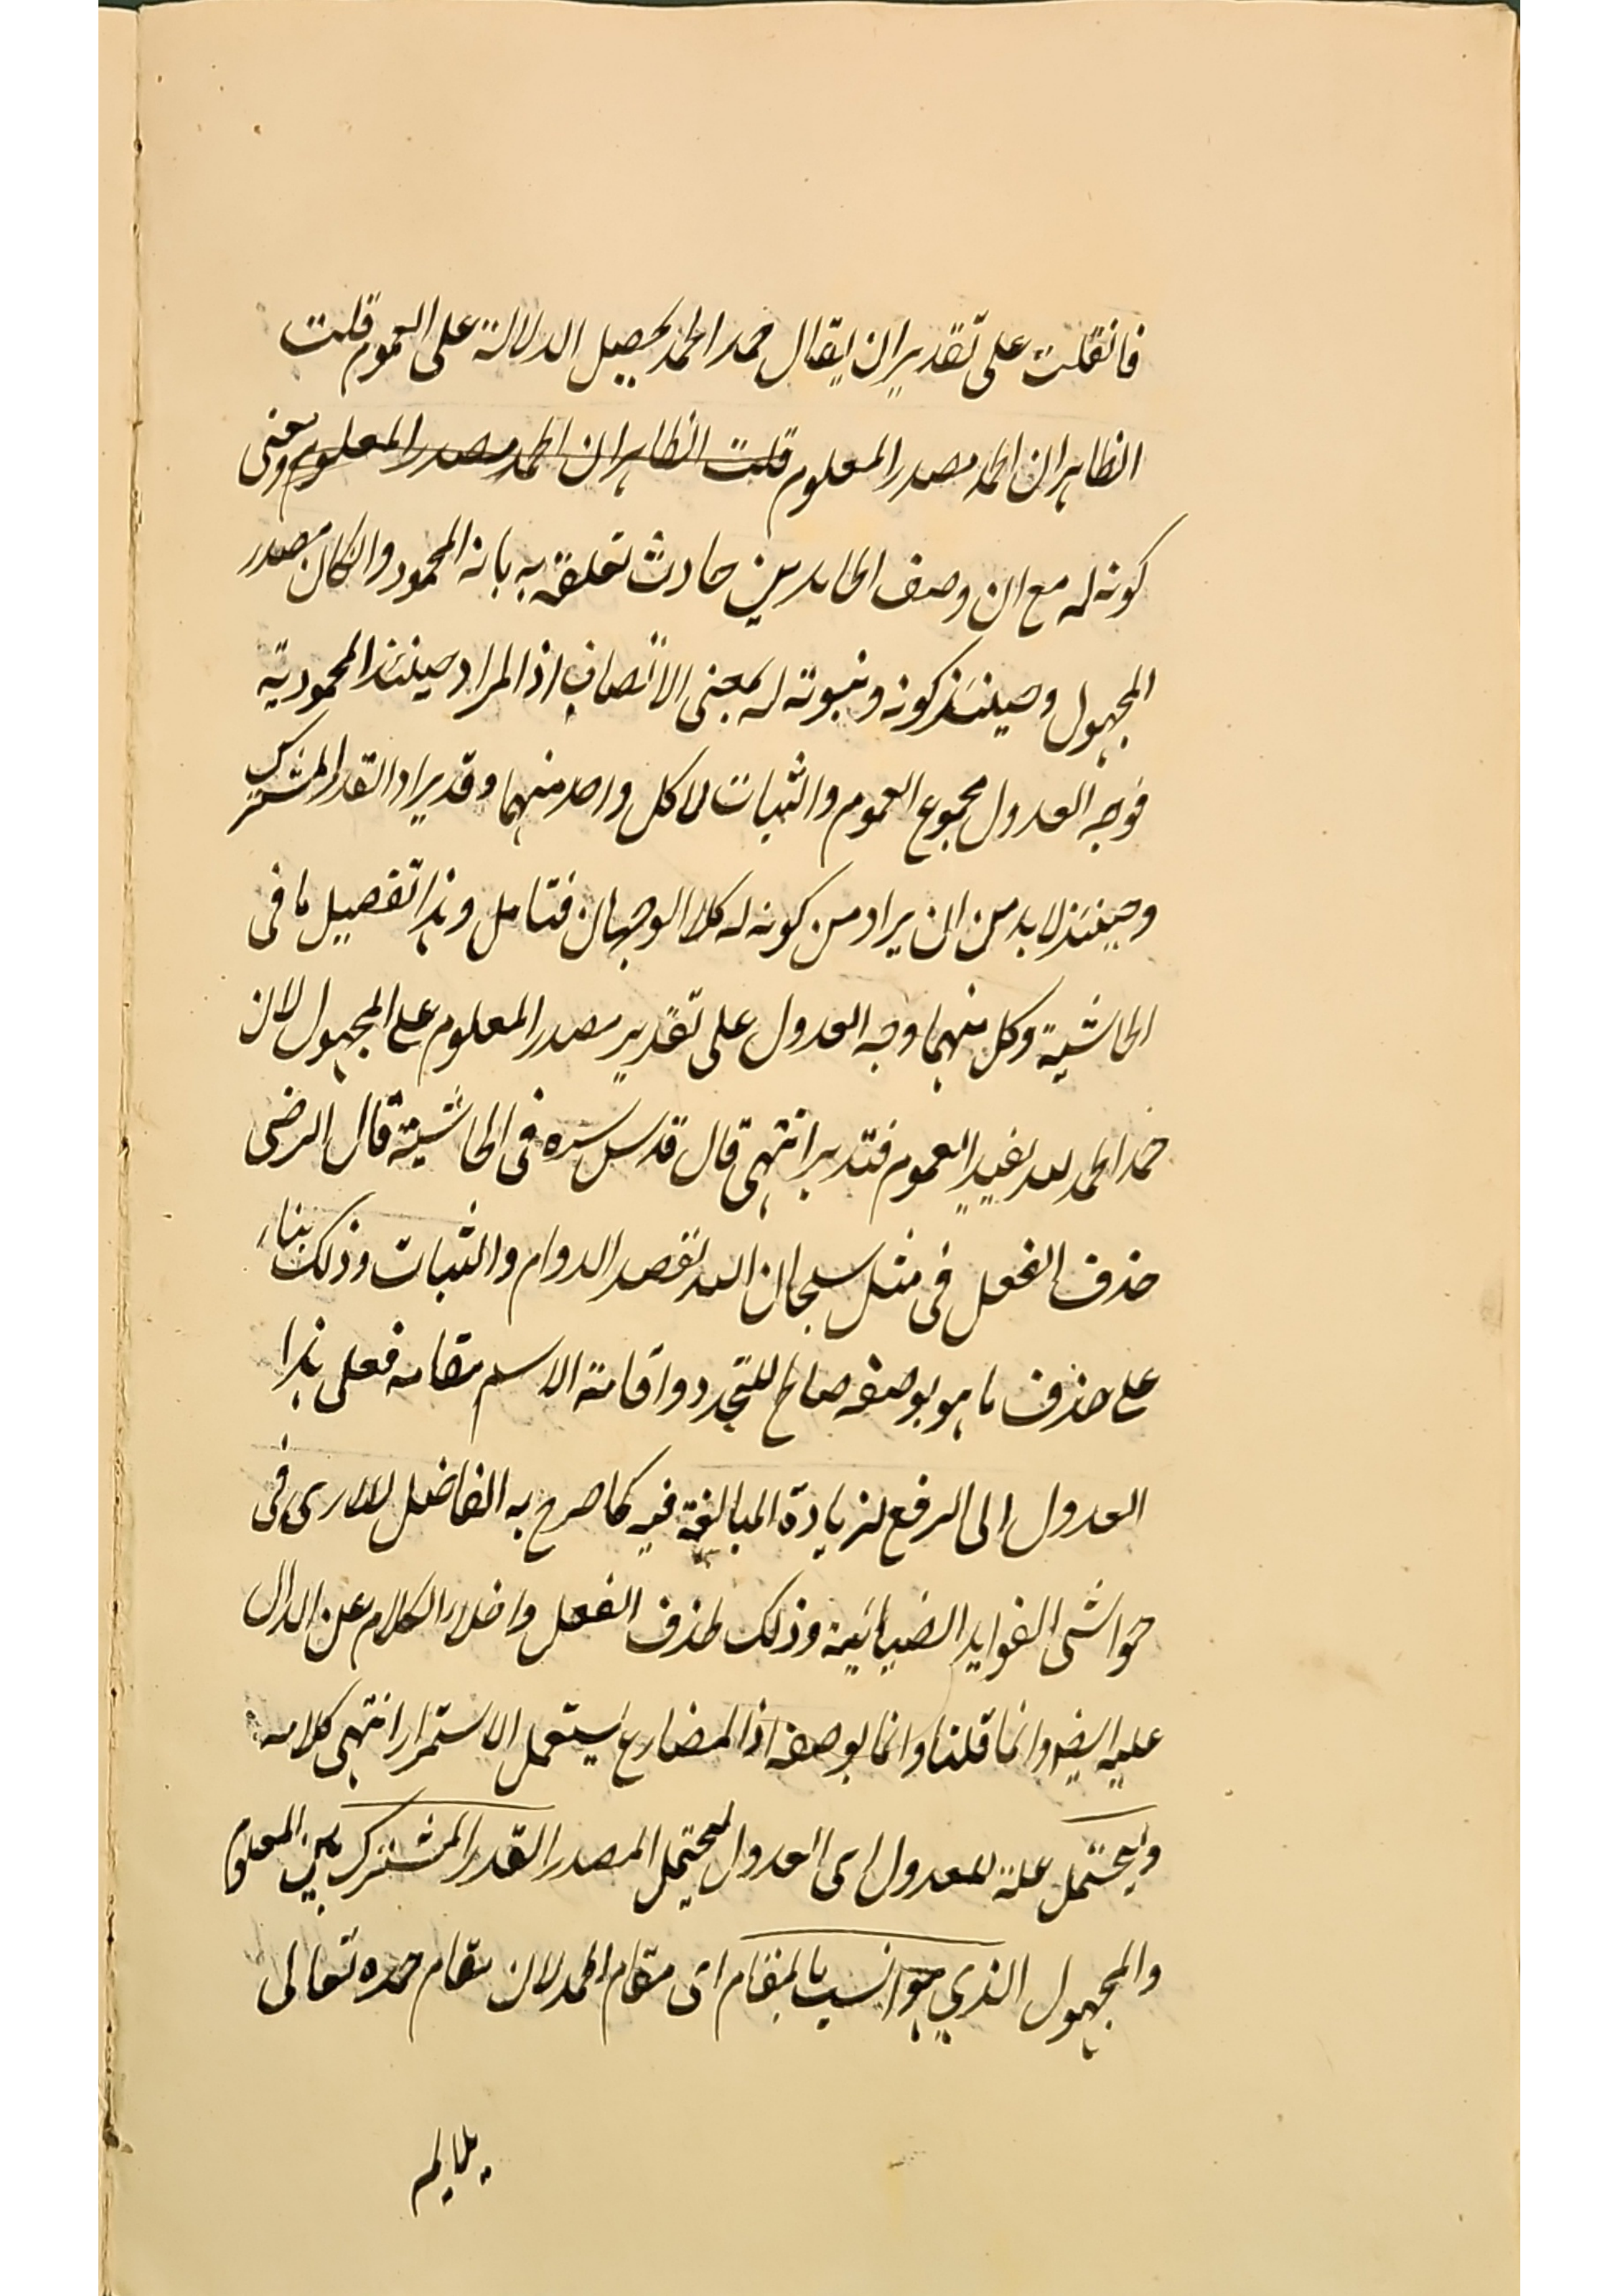 فانقلت على تقدير ان يقال حمد الحمد يحصل الدلالة على العموم قلت
الظاهر ان الحمد مصدر المعلوم قلت الظاهر ان الحمد مصدر المعلوم ومعنى
كونه له مع ان وصف الحامدين حادث تعلقه به بانه المحمود وان كان مصدر
المجهول وحينئذ كونه وثبوته له بمعنى الاتصاف اذ المراد حينئذ المحمودية
فوجه العدول مجموع العموم والثبات لا كل واحد منهما وقد يراد القدر المشترك
وحينئذ لا بد من ان يراد من كونه له كلا الوجهان فتامل وهذا تفصيل ما فى
الحاشية وكل منهما وجه العدول على تقدير مصدر المعلوم على المجهول لان
حمد الحمد لله يفيد العموم فتدبر انتهى قال قدس سره فى الحاشية قال الرضى
حذف الفعل فى مثل سبحان الله لقصد الدوام والثبات وذلك بناء
على حذف ما هو بوصفه صالح للتجدد واقامة الاسم مقامه فعلى هذا
العدول الى الرفع لزيادة المبالغة فيه كما صرح به الفاضل اللارى فى
حواشى الفوايد الضيائية وذلك لحذف الفعل واخلاء الكلام عن الدال
عليه ايضا وانما قلنا وانما بوصفه اذ المضارع يستعمل الاستمرار انتهى كلامه
ويحتمل علة للعدول اى العدول ليحتمل المصدر القدر المشترك بين المعلوم
والمجهول الذي هو انسب بالمقام اى مقام الحمد لان مقام حمده تعالى